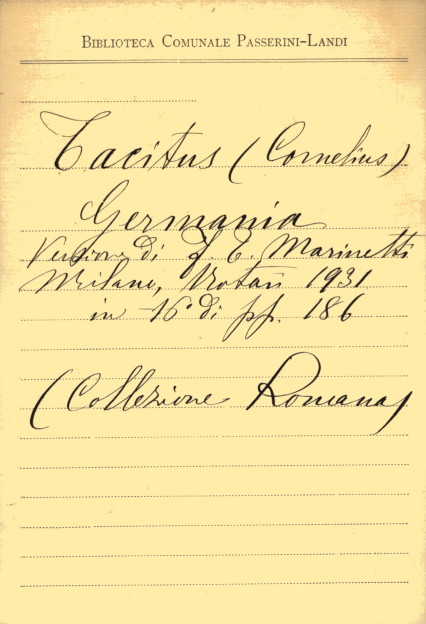 BIBLIOTECA COMUNALE PASSERINI-LANDI
Tacitus (Cornelius)
Germania
Versione di F. E. Marinetti
Milano, Notari 1931
in 16° di pp. 186
(Collezione Romana)